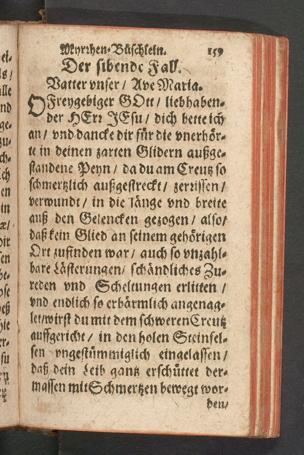 Myrrhen-Büschlein. 159
Der sibende Fall.
Vatter vnser / Ave Maria.
O Freygebiger GOtt / liebhaben-
der HErr JEsu / dich bette ich
an / vnd dancke dir für die vnerhör-
te in deinen zarten Glidern außge-
standene Peyn / da du am Creutz so
schmertzlich außgestreckt / zerrissen /
verwundt / in die länge vnd breite
auß den Gelencken gezogen / also /
daß kein Glied an seinem gehörigen
Ort zufinden war / auch so vnzahl-
bare Lästerungen / schändliches Zu-
reden vnd Scheltungen erlitten /
vnd endlich so erbärmlich angenag-
let / wirst du mit dem schweren Creutz
auffgericht / in den holen Steinfel-
sen vngestümmiglich eingelassen /
daß dein Leib gantz erschüttet der-
massen mit Schmertzen bewegt wor-
den /